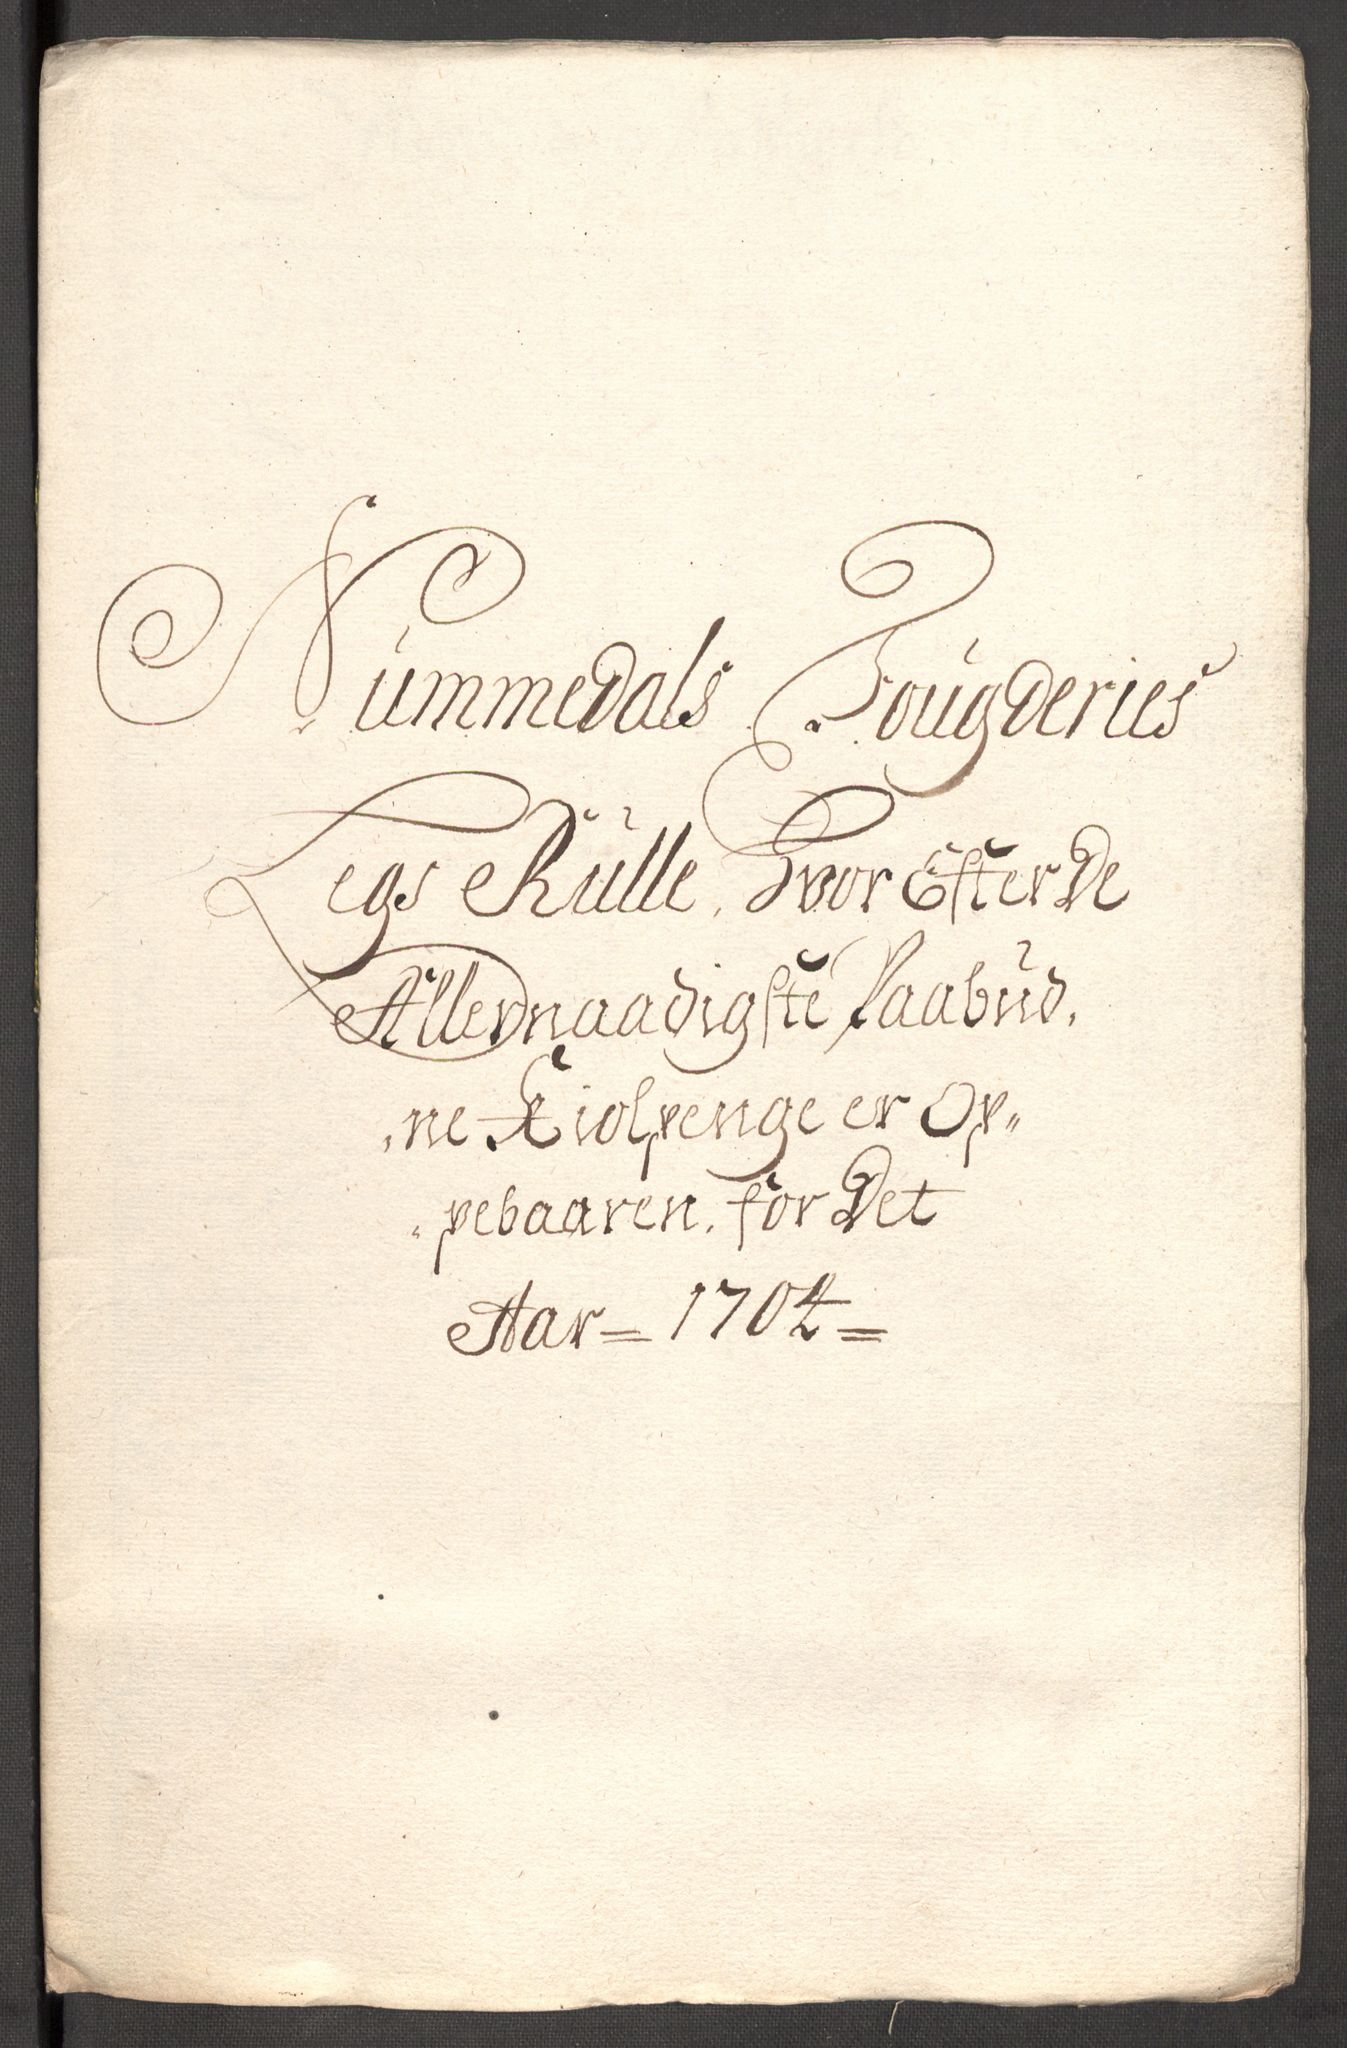 Nummedals Fougderies
Legs Rulle, Hvor Efter De
Allernaadigste Paabud,
,ne Kiolpenge er Op„
„pebaaren, for Det
Aar = 1704 =